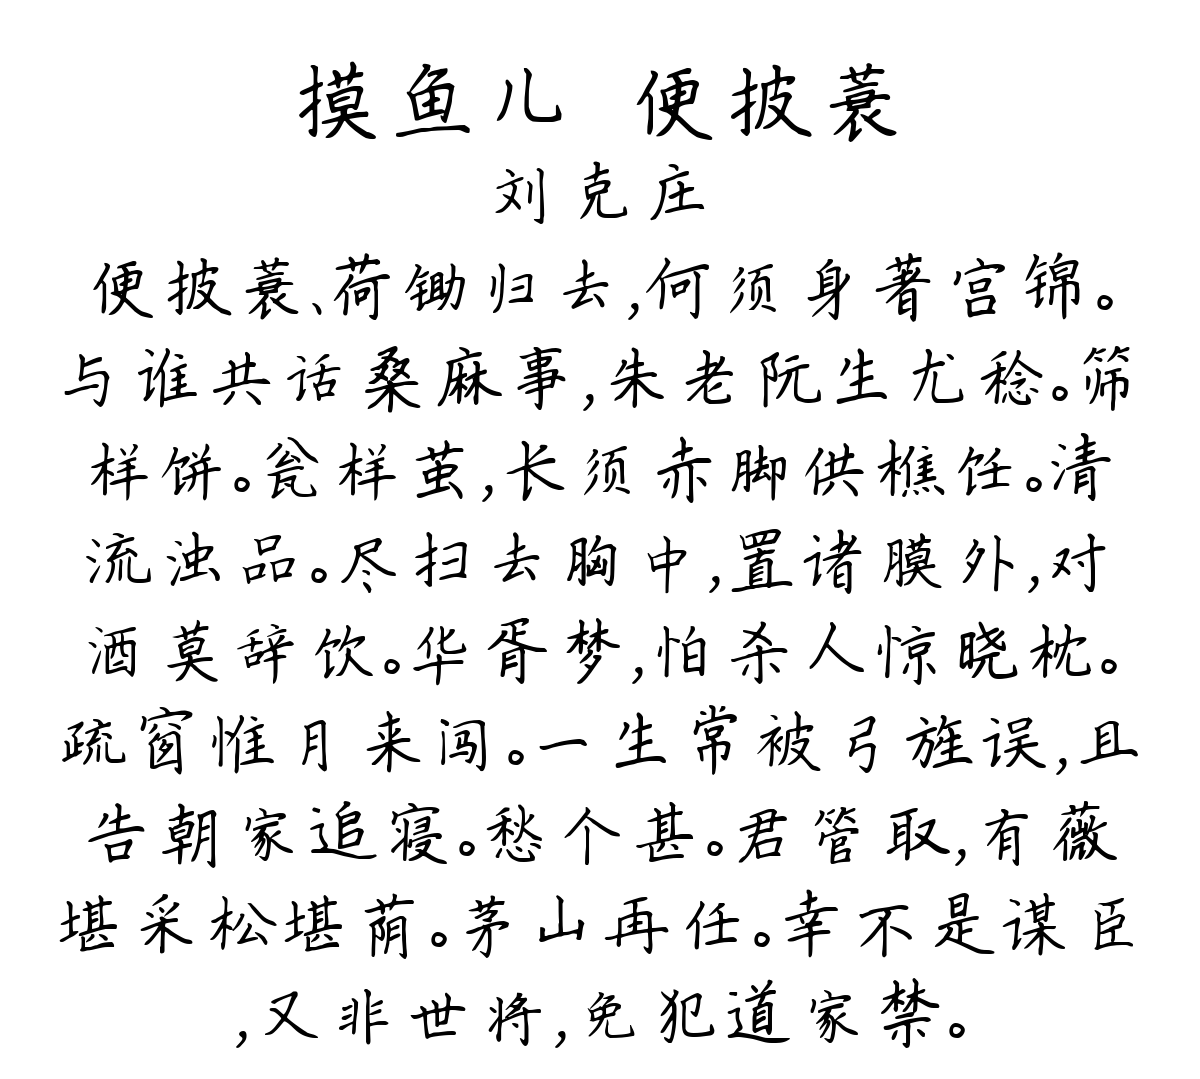 摸鱼儿 便披蓑
刘克庄
便披蓑、荷锄归去,何须身著宫锦。
与谁共话桑麻事,朱老阮生尤稔。筛
样饼。瓮样茧,长须赤脚供樵饪。清
流浊品。尽扫去胸中,置诸膜外,对
酒莫辞饮。华胥梦,怕杀人惊晓枕。
疏窗惟月来闯。一生常被弓旌误,且
告朝家追寝。愁个甚。君管取,有薇
堪采松堪荫。茅山再任。幸不是谋臣
,又非世将,免犯道家禁。